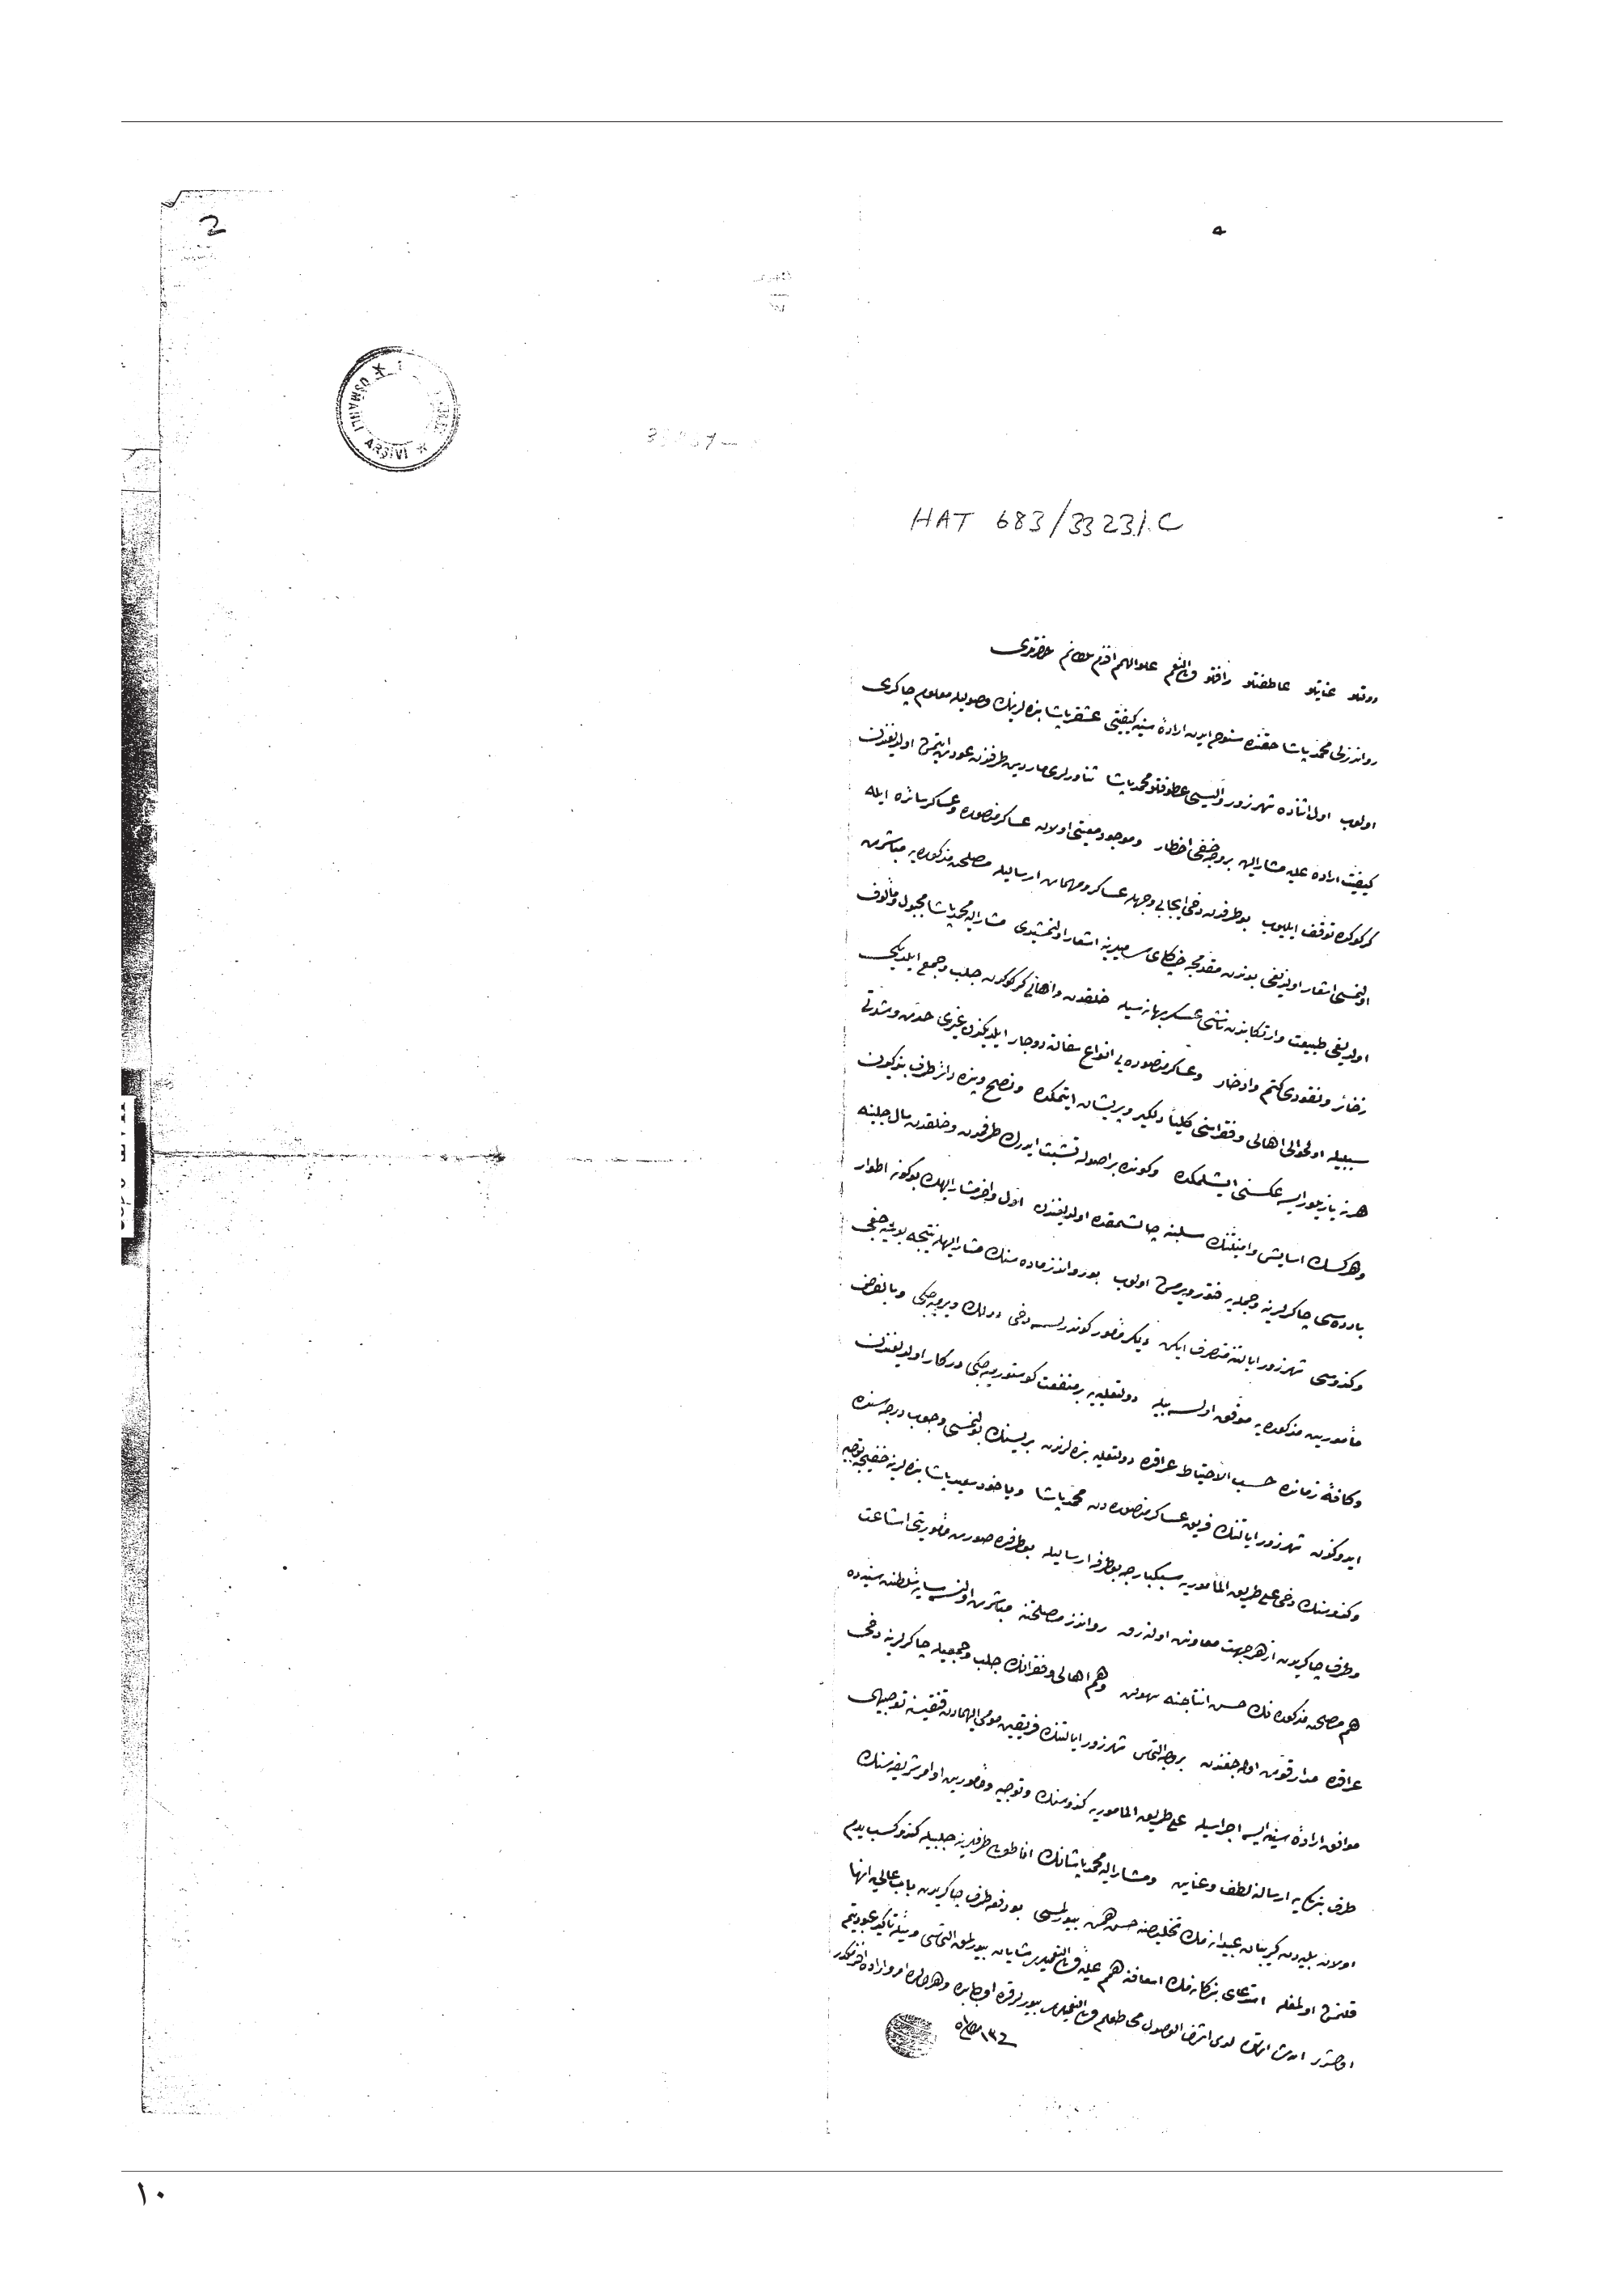 2
HAT 683/33231.C
OSMANLI ARŞİVİ
دولتلو عنایتلو عاطفتلو رأفتلو ولی النعم افندم حضرتلری
رواندزلی محمد پاشا حقنده سنوح ایدن اراده سنیه کیفیتی پاشا بنده لرینک وصولیله معلوم چاکری
اولوب اول اثناده شهرزور والیسی عطوفتلو محمد پاشا ماردین طرفندن عودت ایتمش اولدیغندن
کیفیت اراده علیه مشارالیه بر وجه خفی اخطار وموجود معیتی اولان عساکر منصوره وعساکر سائره ایله
کرکوکده توقف ایلیوب بو طرفدن دخی ایجابی وجهله عساکر ومهمات ارسالیله مصلحت مذکوره یه مباشرت
اولنمسی اشعار اولندیغی بوندن مقدمجه اشعار اولنمشیدی مشارالیه محمد پاشا مجبول ومألوف
اولدیغی طبیعت وارتکابندن ناشی عسکر بهانه سیله خلقدن واهالی کرکوکدن جلب وجمع ایلدیکی
ذخائر ونقودی کتم وادخار وعساکر منصوره یی انواع سفالته دوچار ایلدیکندن غیری حدت وشدتی
سببیله اول حوالی اهالی وفقراسنی کلیاً دلگیر وپریشان ایتمکده ونصح وپنده دائر طرف بندکیدن
هر نه یازیلور ایسه عکسنی ایشلمکده وکونده بر اصوله تشبث ایدرک طرفمدن وخلقدن مال جلبنه
وهرکسک اسایش وامنیتنک سلبنه چالشمقده اولدیغندن اول واخر مشارالیهک بوکونه اطوار
بارده سی چاکرلرینه وجمله یه فتور ویرمش اولوب بو رواندز ماده سنک مشارالیهله نتیجه بولمیه جغی
وکندوسی شهرزور ایالتنه متصرف ایکن دیگر مأمور کوندرلسه دخی ویرمیه جکی وبالفرض
مأموریت مذکوره یه موفق اولسه بیله دولتعلیه یه بر منفعت کوستورمیه جکی درکار اولدیغندن
وکافه زمانده حسب الاحتیاط عراقده دولتعلیه بنده لرندن بریسنک بولنمسی وجوب درجه سنده
ایدوکندن شهرزور ایالتنک فریق عساکر منصوره دن محمد پاشا ویاخود سعید پاشا بنده لرینه خفیجه توجیه
وکندوسنک دخی علی طریق المأموریه سبکبارجه بو طرفه ارسالیله بو طرفده صورت مأموریتی اشاعت
وطرف چاکریدن از هر جهت معاونت اولنه رق رواندز مصلحتنه مباشرت اولنسه سایه سلطنت سنیه ده
هم مصلحت مذکوره نک حسن انتاجنه سهولت وهم اهالی وفقرانک جلب وجمعیله چاکرلرینه دخی
عراقده مدار قوت اوله جغندن بر وجه التماس شهرزور ایالتنک فریقین مومی الیهمادن قنغیسنه توجیهی
موافق اراده سنیه ایسه اجراسیله علی طریق المأموریه کندوسنک وتوجیه ومأموریت اوامر شریفه سنک
طرف بندکی یه ارسالنه لطف وعنایت ومشارالیه محمد پاشانک اناطولی طرفلرینه جلبیله
اولان عبیدانه مک تخلیصنه حسن همت بیورلمسی بو دفعه طرف چاکریدن باب عالی یه انها
قلنمش اولمغله استدعای بندکانه مک اسعافنه همم علیه ولی النعمیلری شایان بیورلمق التماسی وسیله تأکید عبودیتم
اولمشدر
١٠